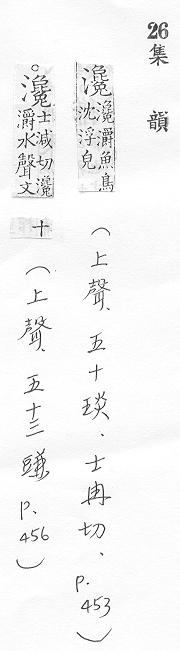 26 集韻
瀺 瀺灂魚鳥沈浮皃 (上聲、五十琰、士冉切、p.453)
。瀺 士減切瀺灂水聲文十 (上聲、五十三豏 p.456)